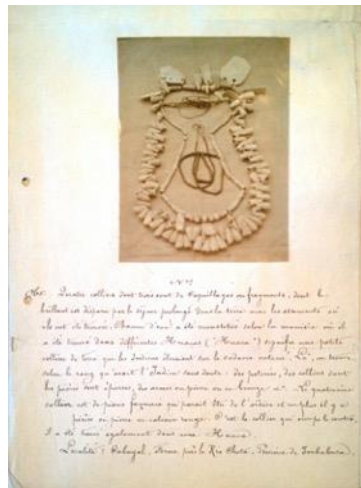 Quatre colliers dont trois sont de coquillages en fragments, dont le
brillant est disparu par le séjour prolongé dans la terre avec les
ils ont été trouvés. Chacun d'eux a été selon la manière où il
a été trouvé dans différentes Huacas ("Huaca") signifie une petite
colline de terre que les Indiens élevaient sur le cadavre enterré. Là, on
selon le rang qu'avait l'Indien sans doute: des poteries, des colliers dont
les pièces sont éparses, des armes en pierre ou en bronze &. Le quatrième
collier est de pierre qui paraît être de l' et en plus il y a
pièces en pierre de rouge. C'est le collier qui occupe le centre,
Il a été trouvé également dans une Huaca.
Localité: , près le Rio Chota, Province de Imbabura.